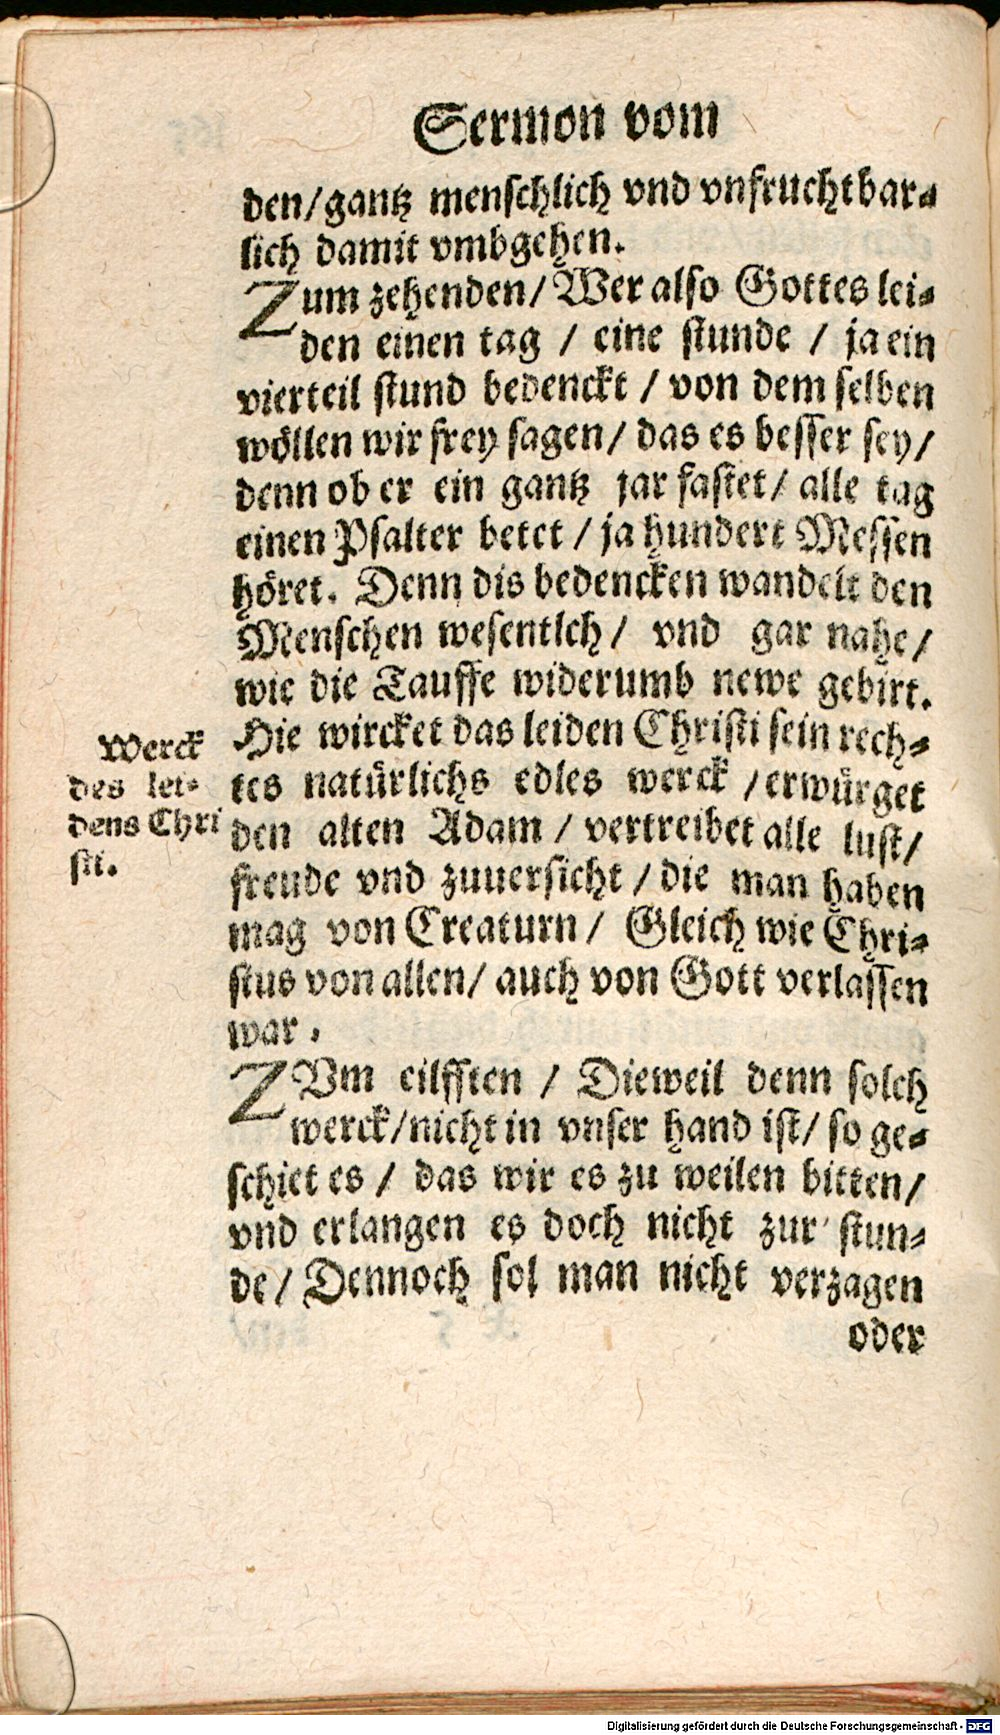 Sermon vom
den/gantz menschlich vnd vnfruchtbar-
lich damit vmbgehen.
Zum zehenden/Wer also Gottes lei-
den einen tag / eine stunde / ja ein
vierteil stund bedenckt / von dem selben
wöllen wir frey sagen/ das es besser sey/
denn ob er ein gantz jar fastet/ alle tag
einen Psalter betet / ja hundert Messen
höret. Denn dis bedencken wandelt den
Menschen wesentlch/ vnd gar nahe/
wie die Tauffe widerumb newe gebirt.
Hie wircket das leiden Christi sein rech-
tes natürlichs edles werck /erwürget
den alten Adam / vertreibet alle lust/
freude vnd zuuersicht / die man haben
mag von Creaturn / Gleich wie Chri-
stus von allen/ auch von Gott verlassen
war.
Werck
des lei-
dens Chri
sti.
ZVm eilfften / Dieweil denn solch
werck/nicht in vnser hand ist/ so ge-
schiet es / das wir es zu weilen bitten/
vnd erlangen es doch nicht zur stun-
de/ Dennoch sol man nicht verzagen
oder
Digitalisierung gefördert durch die Deutsche Forschungsgemeinschaft - DFG